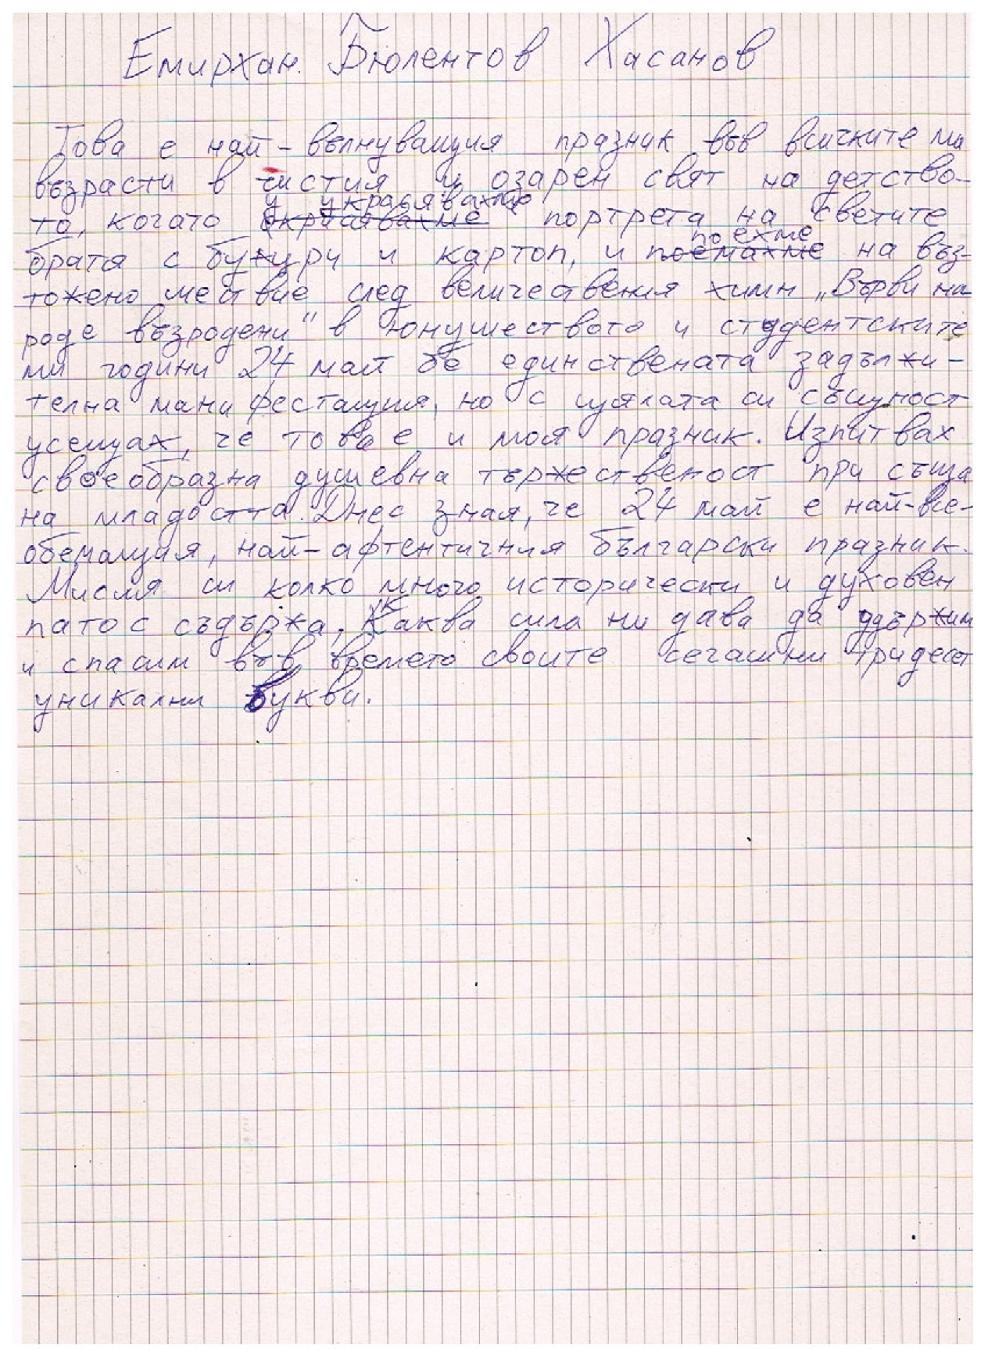 Емирхан Бюлентов Хасанов
Това е най-вълнуващия празник във всичките ми
възрасти в чистия и озарен свят на детство-
у украсявахме
то, когато окрасявахме портрета на светите
поехме
братя с букури и картоп, и поемахме на въз-
тожено шествие след величествения химн „Върви на
роде възродени" в юнушеството и студентските
ми години 24 май бе единствената задължи-
телна манифестация, но с цялата си същност
усещах, че това е и моя празник. Изпитвах
своеобразна душевна тържественост при съща
на младостта. Днес зная, че 24 май е най-все-
обемащия, най-афтентичния български празник.
Мисля си колко много исторически и духовен
патос съдържа. Каква сила ни дава да удържим
и спасим във времето своите сегашни тридесет
уникални букви.